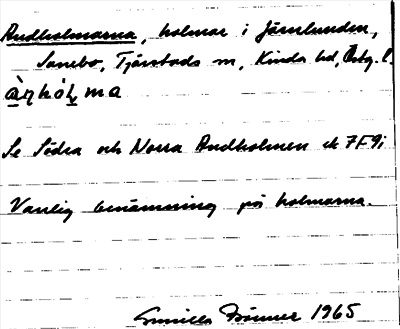 Andholmarna, holmar i Järnlunden,
Sanebo, Tjärstads sn, Kinda hd, Östg. l.
Se Södra och Norra Andholmen ek 7F9i
Vanlig benämning på holmarna.
Gunilla 1965